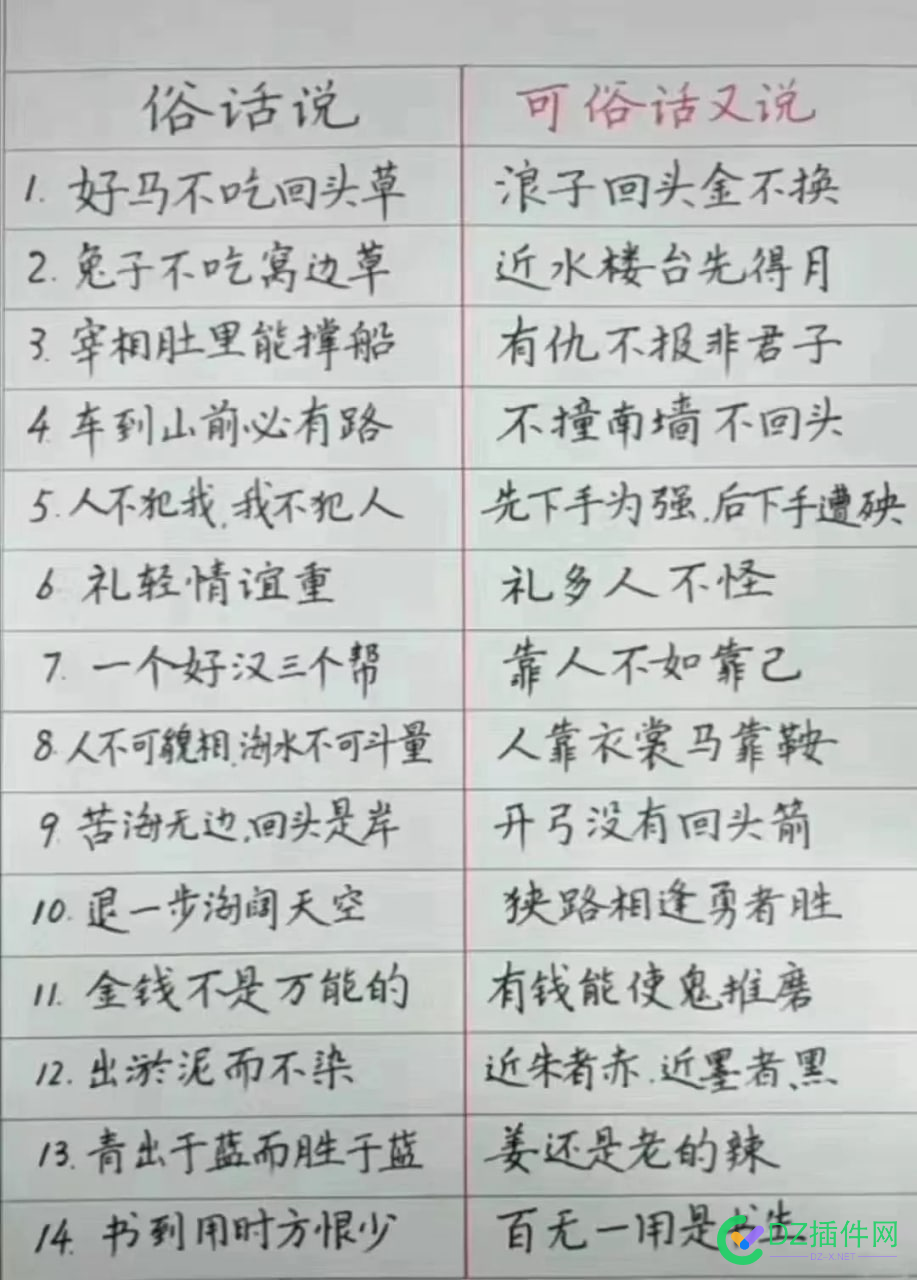 俗话说 可俗话又说
1. 好马不吃回头草 浪子回头金不换
2. 兔子不吃窝边草 近水楼台先得月
3. 宰相肚里能撑船 有仇不报非君子
4. 车到山前必有路 不撞南墙不回头
5. 人不犯我,我不犯人 先下手为强,后下手遭殃
6 礼轻情谊重 礼多人不怪
7. 一个好汉三个帮 靠人不如靠己
8. 人不可貌相,海水不可斗量 人靠衣裳马靠鞍
9. 苦海无边,回头是岸 开弓没有回头箭
10. 退一步海阔天空 狭路相逢勇者胜
11. 金钱不是万能的 有钱能使鬼推磨
12. 出淤泥而不染 近朱者赤,近墨者黑
13. 青出于蓝而胜于蓝 姜还是老的辣
14. 书到用时方恨少 百无一用是书生
DZ插件网
DZ-X.NET